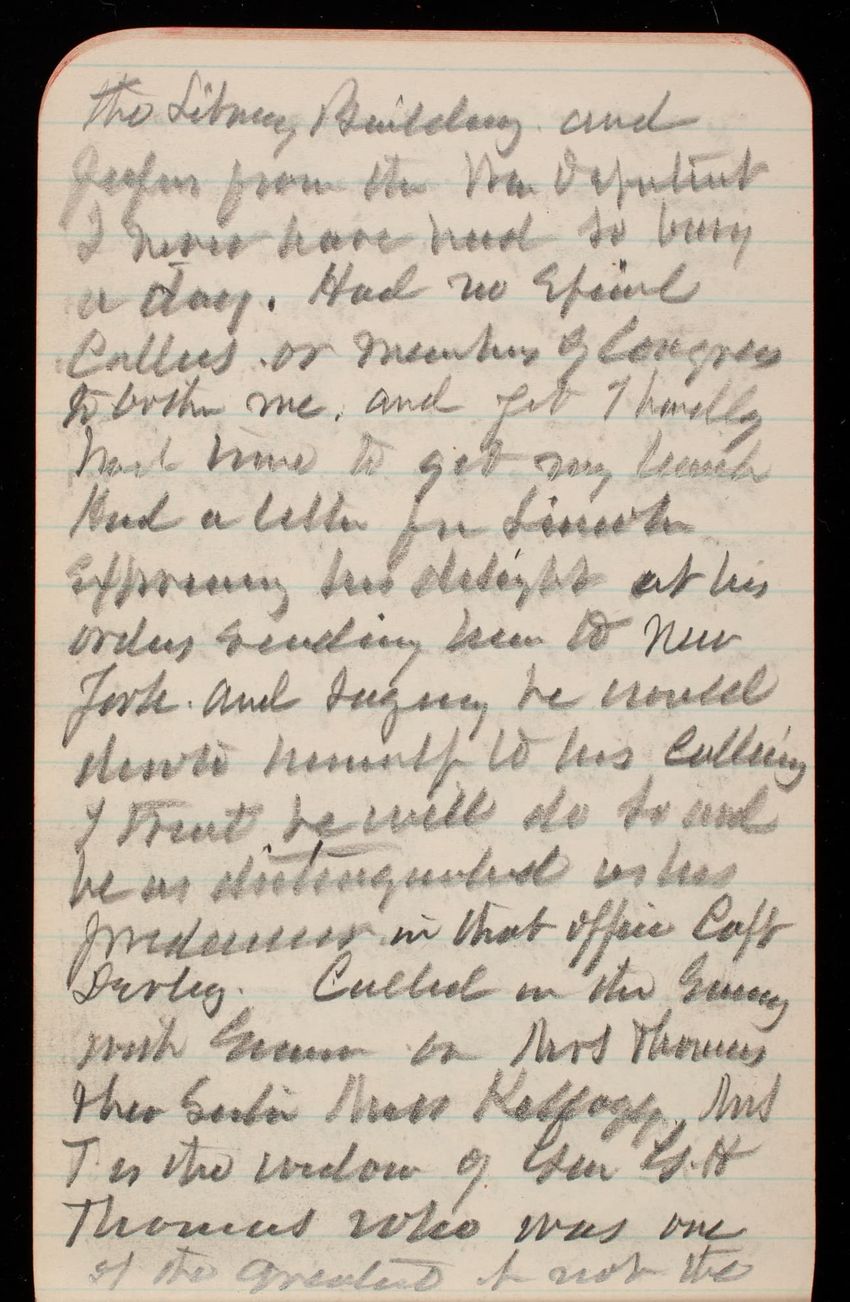 the Library Building and
papers from the War Deptment
I never have had so busy
a day. Had no Special
Callers or members of Congress
to bother me. and yet I hardly
had time to get my lunch
Had a letter from Lincoln
Expressing his delight at his
orders sending him to New
York. and saying he would
devote himself to his Calling
I trust he will do so and
be as distinguished as his
predecessor in that office Capt
Derby. Called in the Evening
with on Mrs Thomas
& her Sister Miss Kellogg, Mrs
T. is the widow of Gen G. H
Thomas who was one
of the greatest if not the